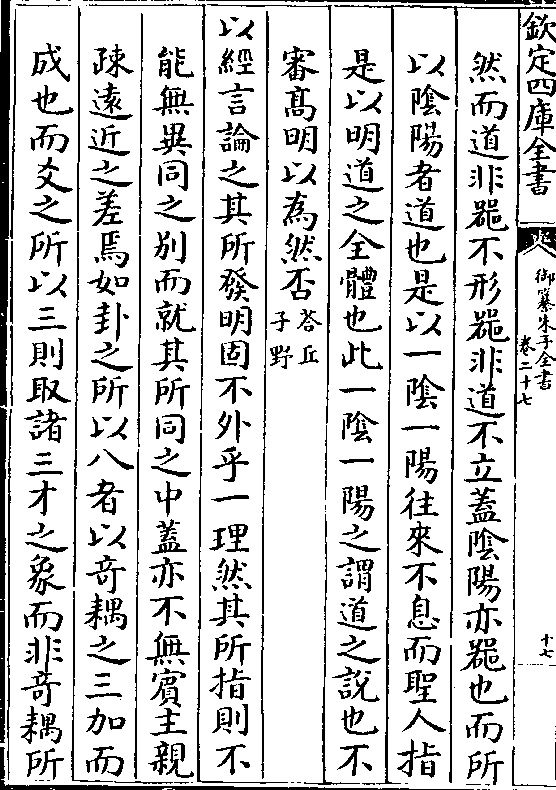 欽定四庫全書
御纂朱子全書
卷二十七
十七
然而道非器不形器非道不立蓋陰陽亦器也而所
以陰陽者道也是以一陰一陽往來不息而聖人指
是以明道之全體也此一陰一陽之謂道之說也不
審髙明以為然否答丘子野
以經言論之其所發明固不外乎一理然其所指則不
能無異同之別而就其所同之中蓋亦不無賓主親
疎遠近之差焉如卦之所以八者以奇耦之三加而
成也而爻之所以三則取諸三才之象而非奇耦所